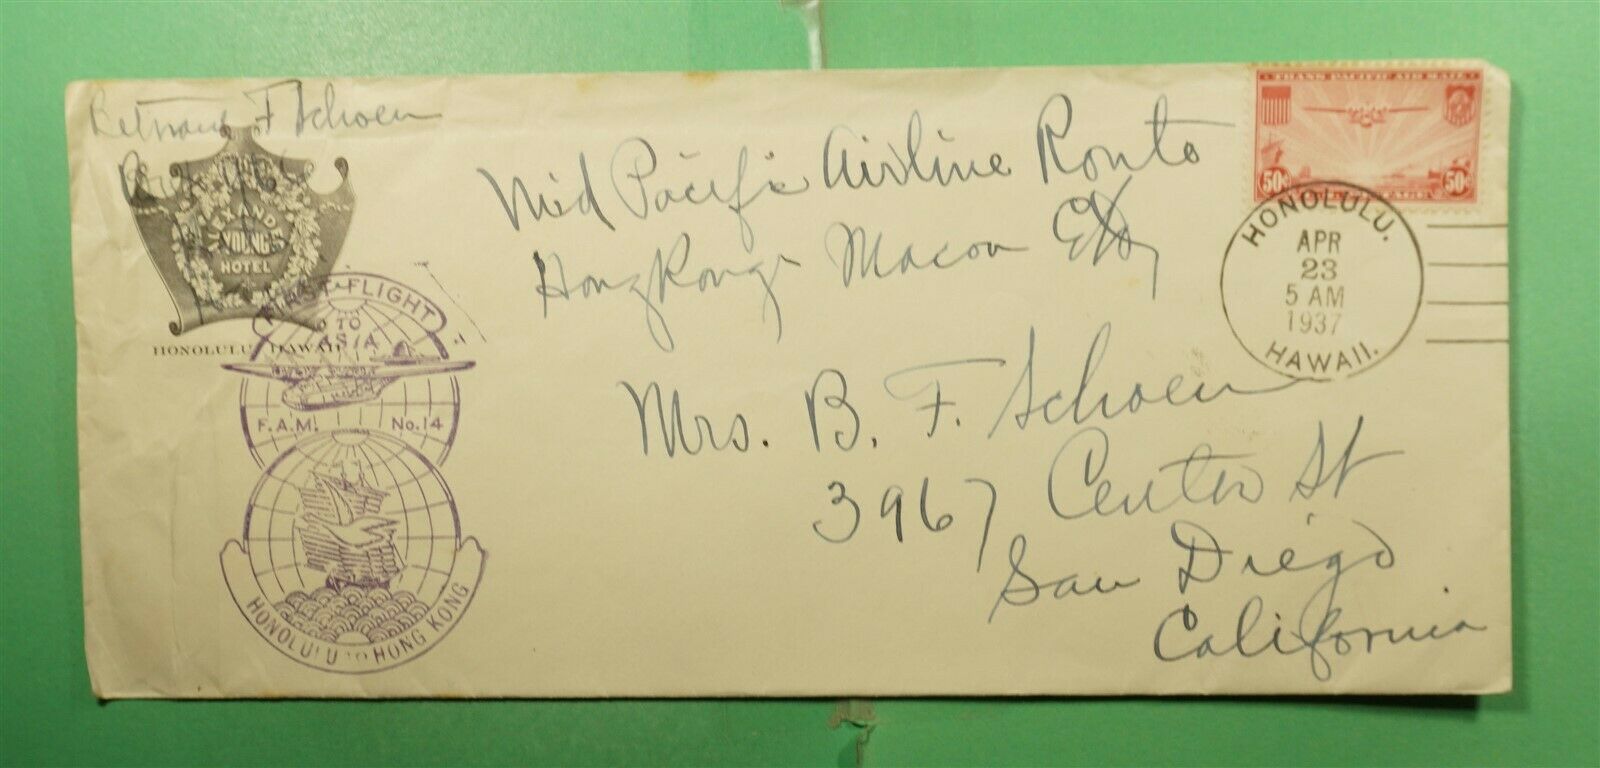 F Schoen
ALEXANDER
YOUNG
HOTEL
HONOLULU, HAWAII
FIRST FLIGHT
TO
ASIA
F.A.M. No. 14
HONOLULU TO HONG KONG
Mid Pacific Airline Route
HongKong Macon
Mrs. B. F. Schoen
3967 Center St
San Diego
California
TRANS-PACIFIC AIR MAIL
50¢ 50¢
HONOLULU.
APR
23
5 AM
1937
HAWAII.